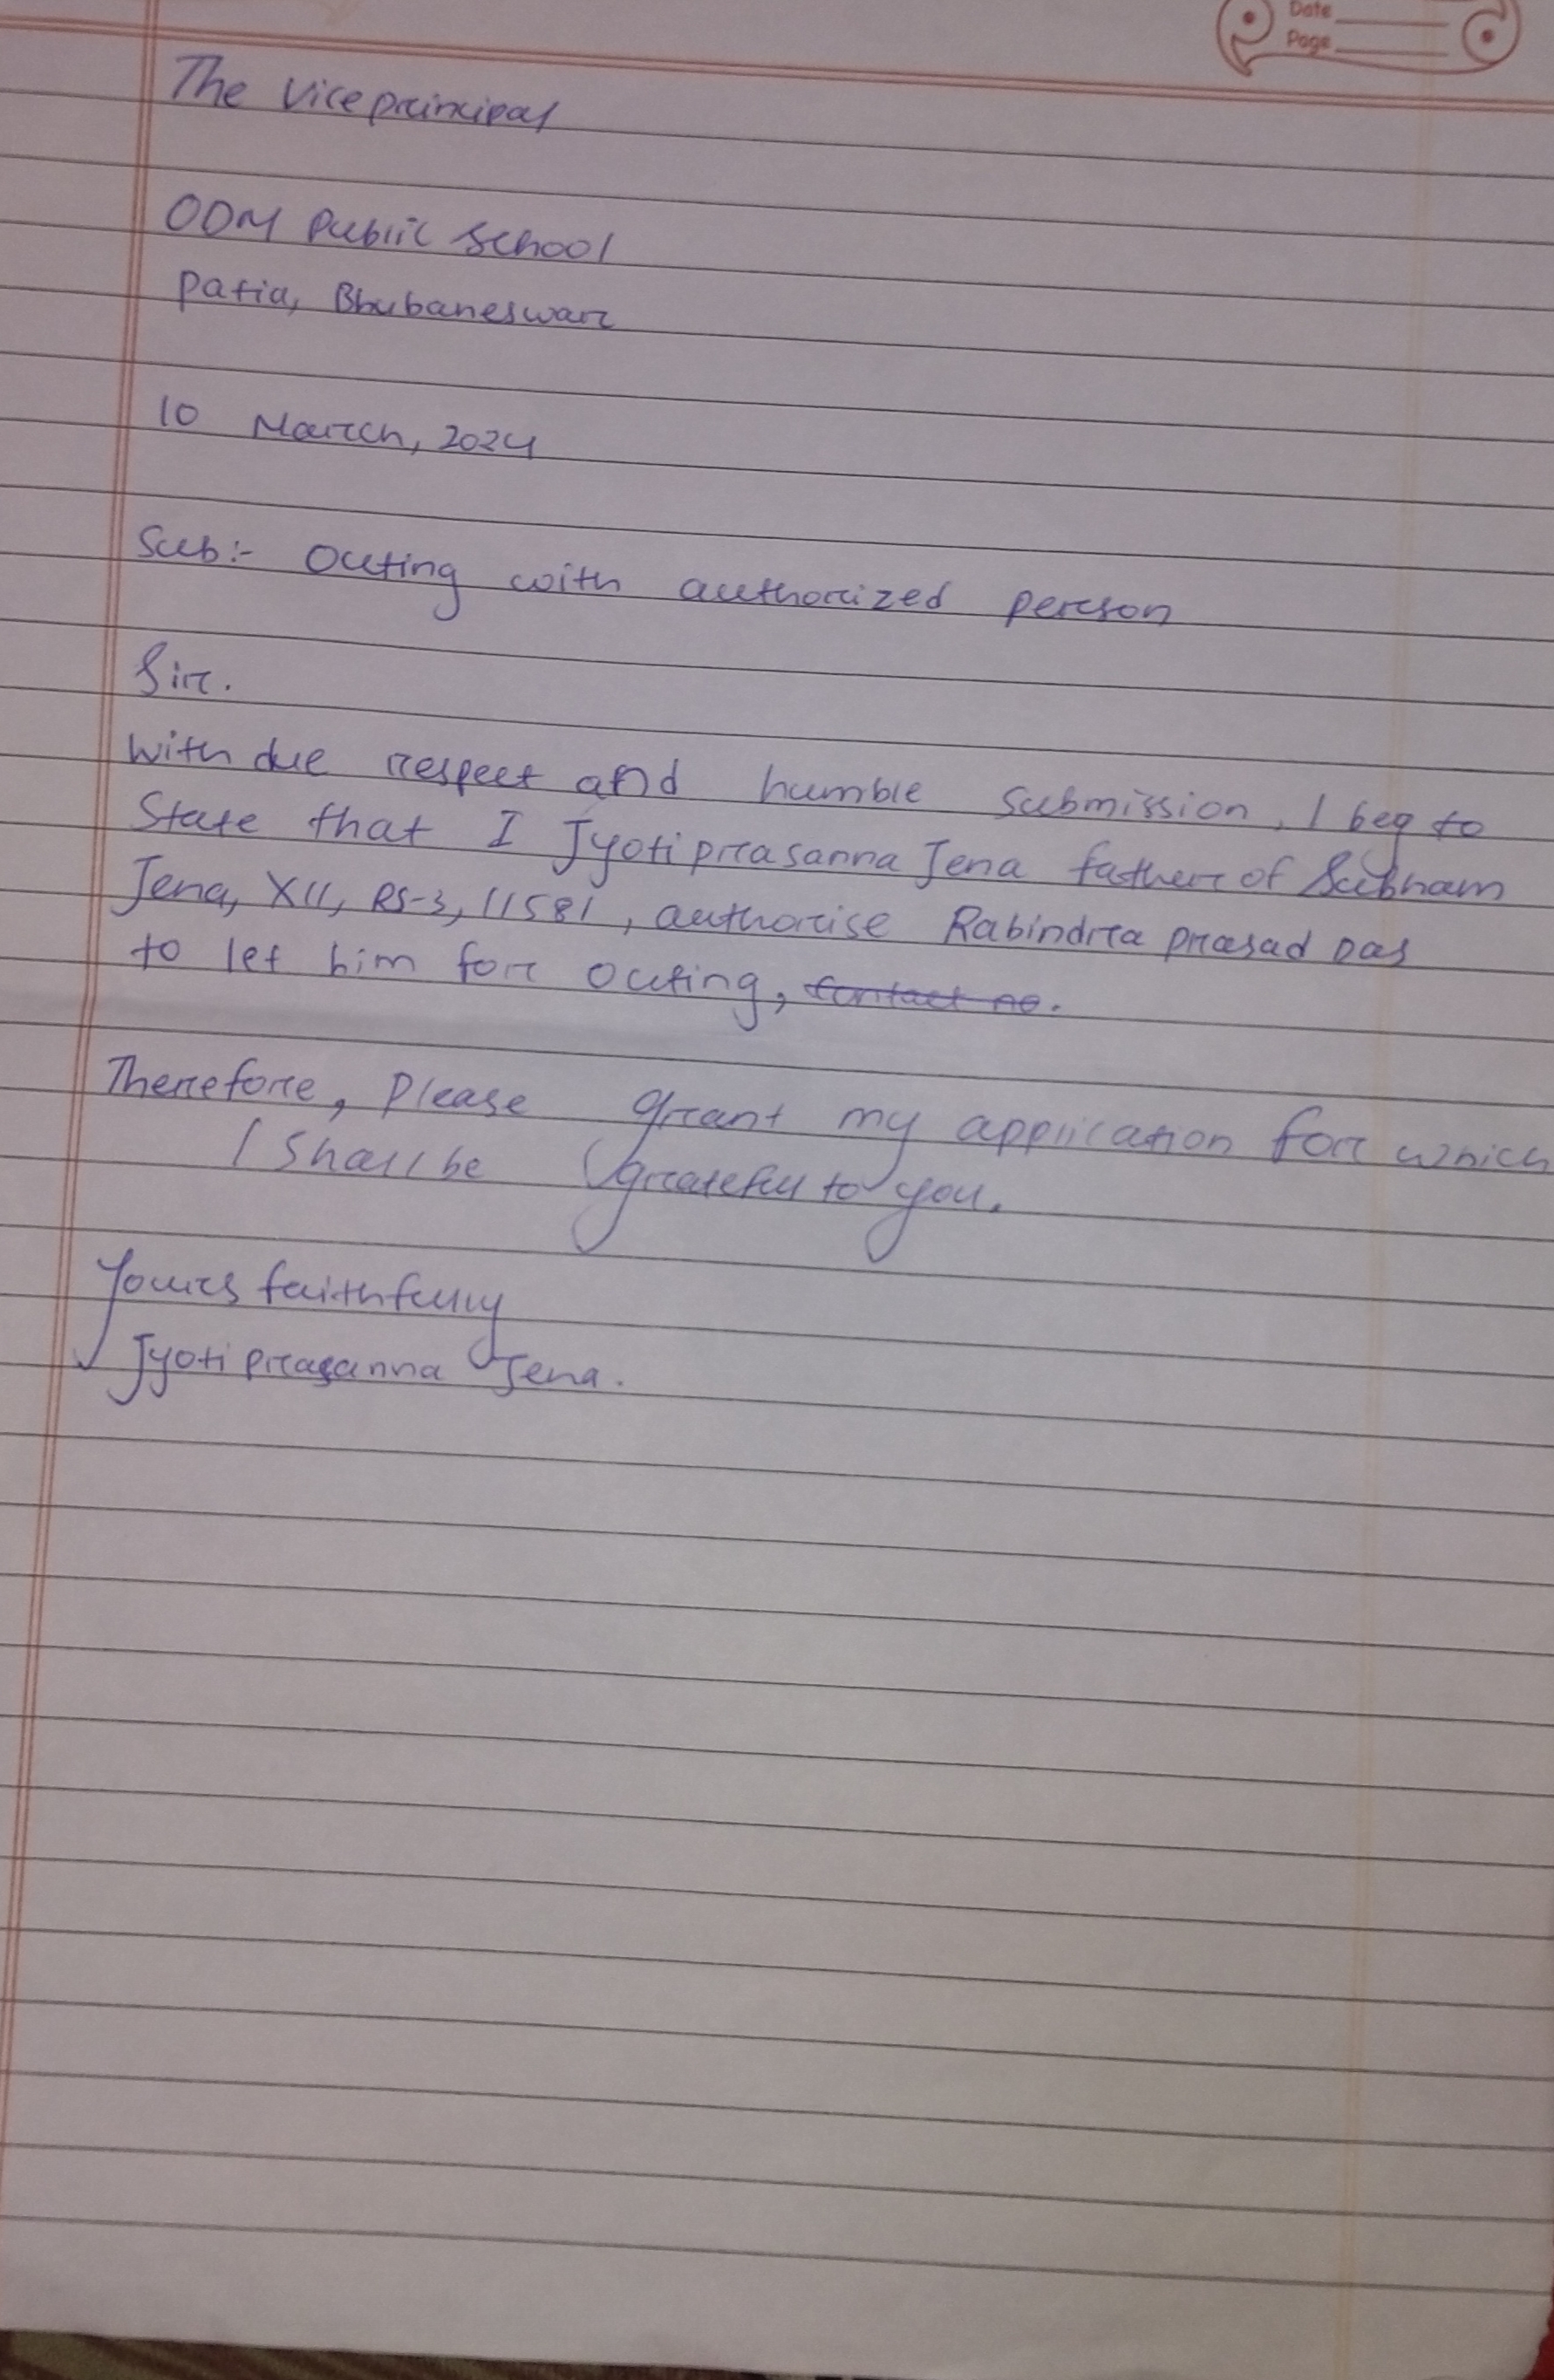 Date
Page
The Vice principal
ODM Public School
Patia, Bhubaneswar
10 March, 2024
Sub:- Outing with authorized person
Sir.
With due respect and humble submission, I beg to
State that I Jyoti prasanna Jena father of Subham
Jena, XII, RS-3, 11581, authorise Rabindra prasad Das
to let him for outing, contact no.
Therefore, Please grant my application for which
I Shall be grateful to you.
Yours faithfully
Jyoti prasanna Jena.